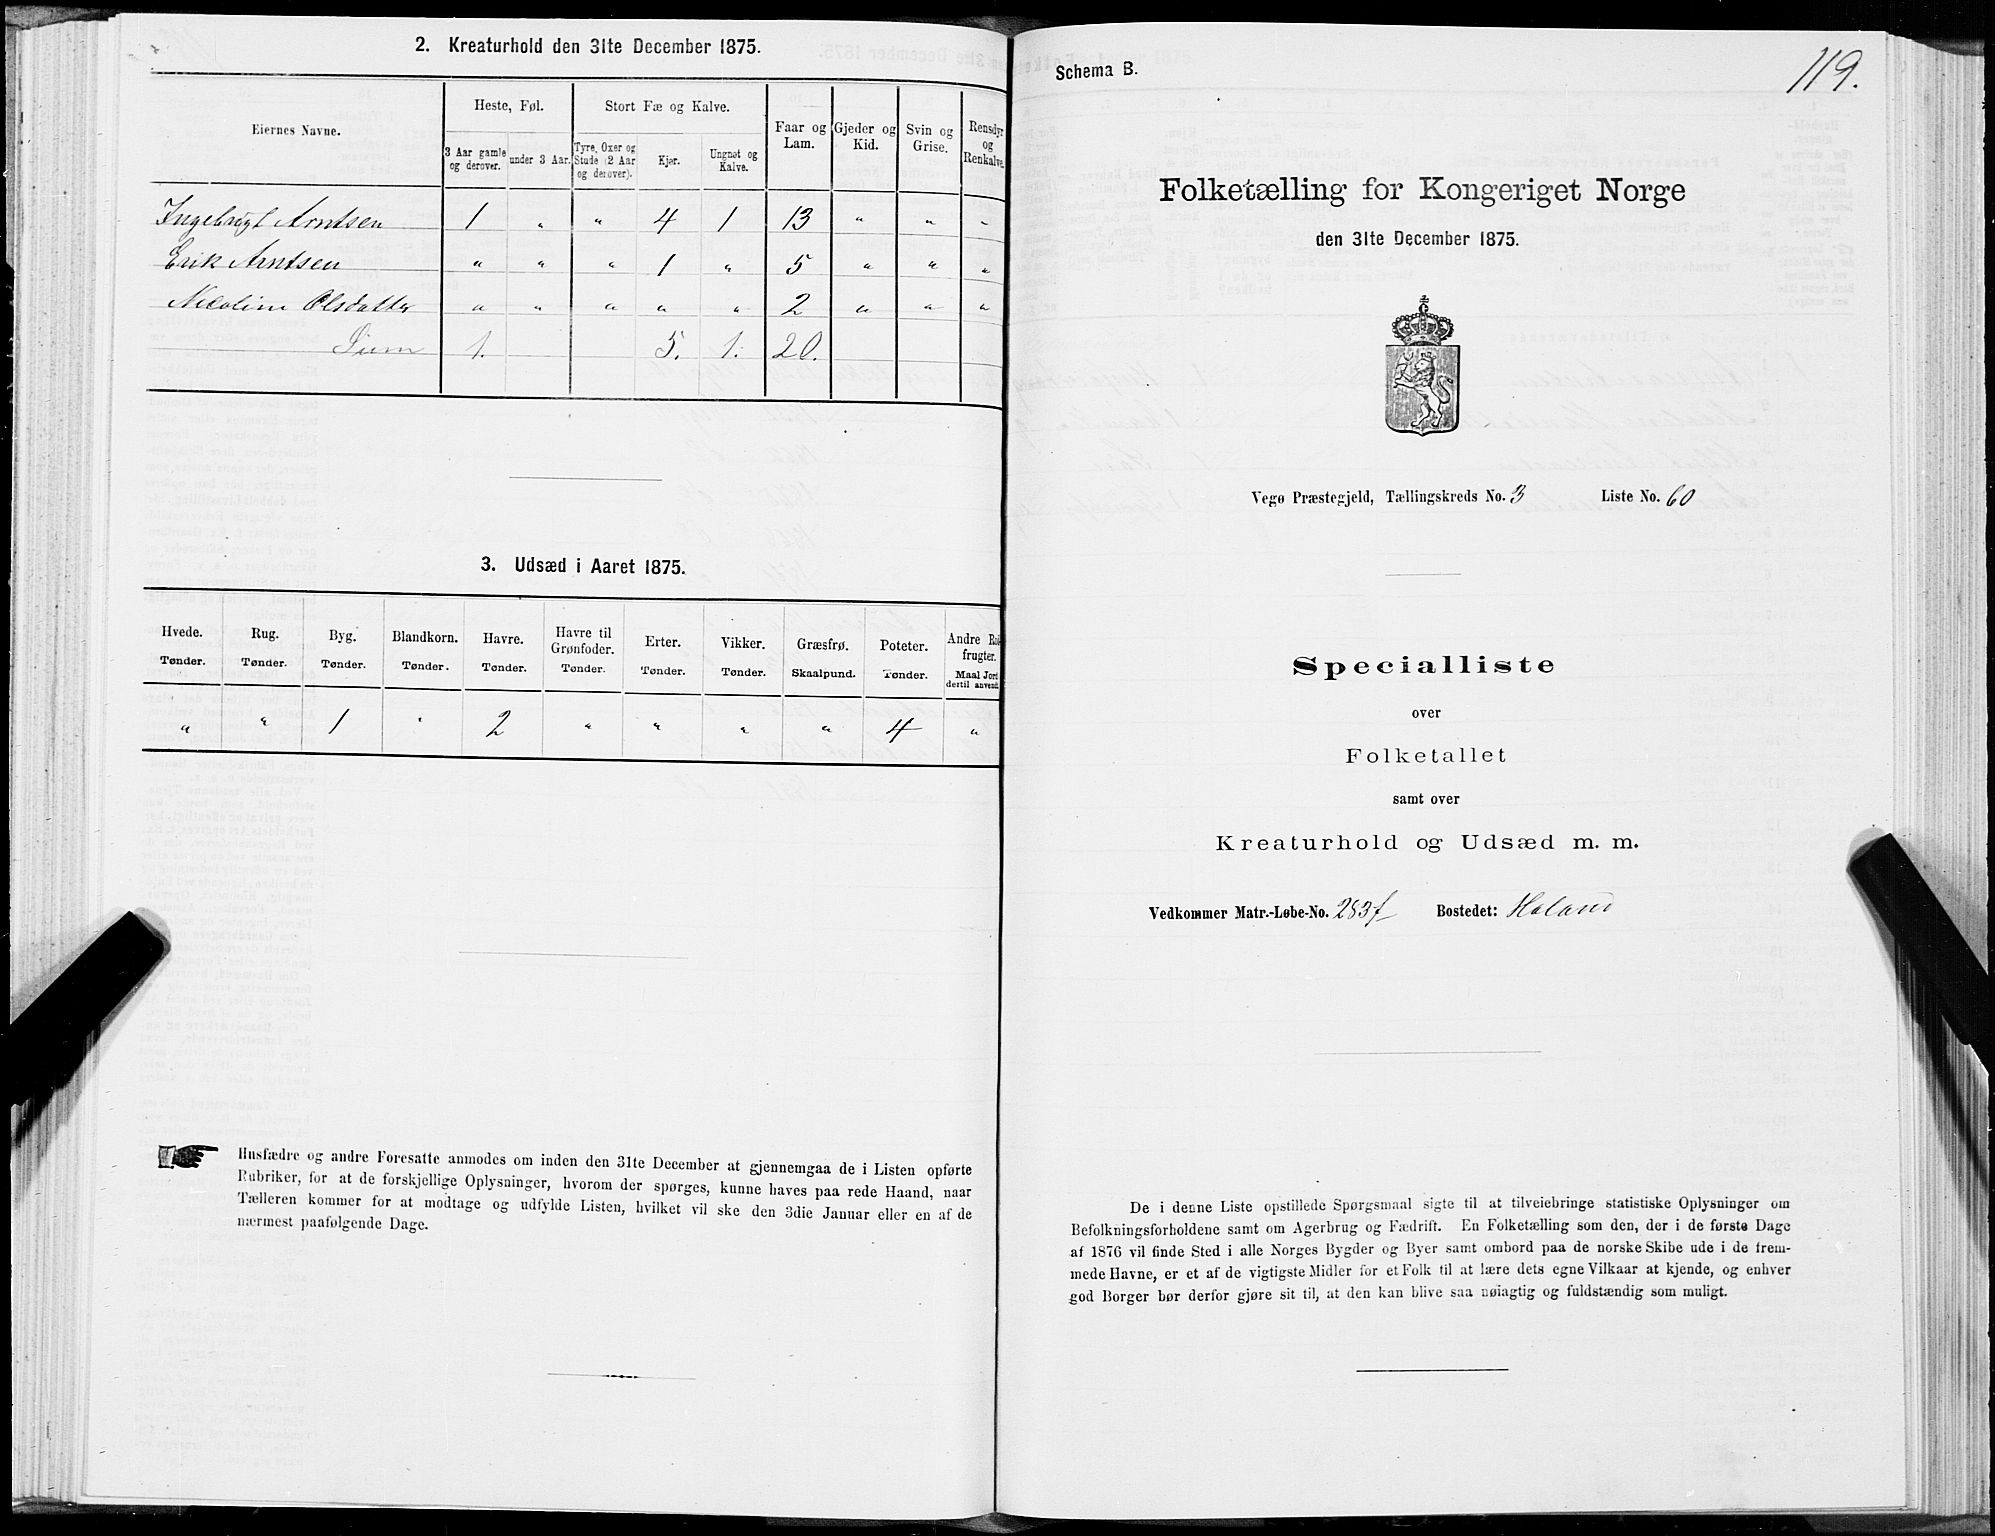 2. Kreaturhold den 31te December 1875.
Eiernes Navne.
Heste, Føl.
Stort Fæ og Kalve.
Faar og Lam.
Gjeder og Kid.
Svin og Grise.
Rensdyr og Renkalve.
3 Aar gamle og derover.
under 3 Aar.
Tyre, Oxer og Stude (2 Aar og derover).
Kjør.
Ungnøt og Kalve.
Ingebrigt Arntsen 1 " " 4 1 13 " " "
Erik Arntsen " " " 1 " 5 " " "
Nicoline Olsdatter " " " " " 2 " " "
Sum 1. 5. 1. 20.
3. Udsæd i Aaret 1875.
Hvede. Rug. Byg. Blandkorn. Havre. Havre til Grønfoder. Erter. Vikker. Græsfrø. Poteter. Andre Rodfrugter.
Tønder. Tønder. Tønder. Tønder. Tønder. Tønder. Tønder. Tønder. Skaalpund. Tønder. Maal Jord dertil anvendt
" " 1 " 2 " " " " 4 "
Husfædre og andre Foresatte anmodes om inden den 31te December at gjennemgaa de i Listen opførte
Rubriker, for at de forskjellige Oplysninger, hvorom der spørges, kunne haves paa rede Haand, naar
Tælleren kommer for at modtage og udfylde Listen, hvilket vil ske den 3die Januar eller en af de
nærmest paafølgende Dage.
119.
Schema B.
Folketælling for Kongeriget Norge
den 31te December 1875.
Vegø Præstegjeld, Tællingskreds No. 3 Liste No. 60
Specialliste
over
Folketallet
samt over
Kreaturhold og Udsæd m. m.
Vedkommer Matr.-Løbe-No. 283f Bostedet: Holand
De i denne Liste opstillede Spørgsmaal sigte til at tilveiebringe statistiske Oplysninger om
Befolkningsforholdene samt om Agerbrug og Fædrift. En Folketælling som den, der i de første Dage
af 1876 vil finde Sted i alle Norges Bygder og Byer samt ombord paa de norske Skibe ude i de frem-
mede Havne, er et af de vigtigste Midler for et Folk til at lære dets egne Vilkaar at kjende, og enhver
god Borger bør derfor gjøre sit til, at den kan blive saa nøiagtig og fuldstændig som muligt.